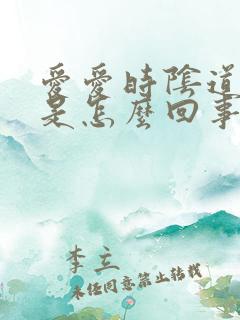 愛愛時陰道
是怎麼回事
李立
未經同意禁止轉載